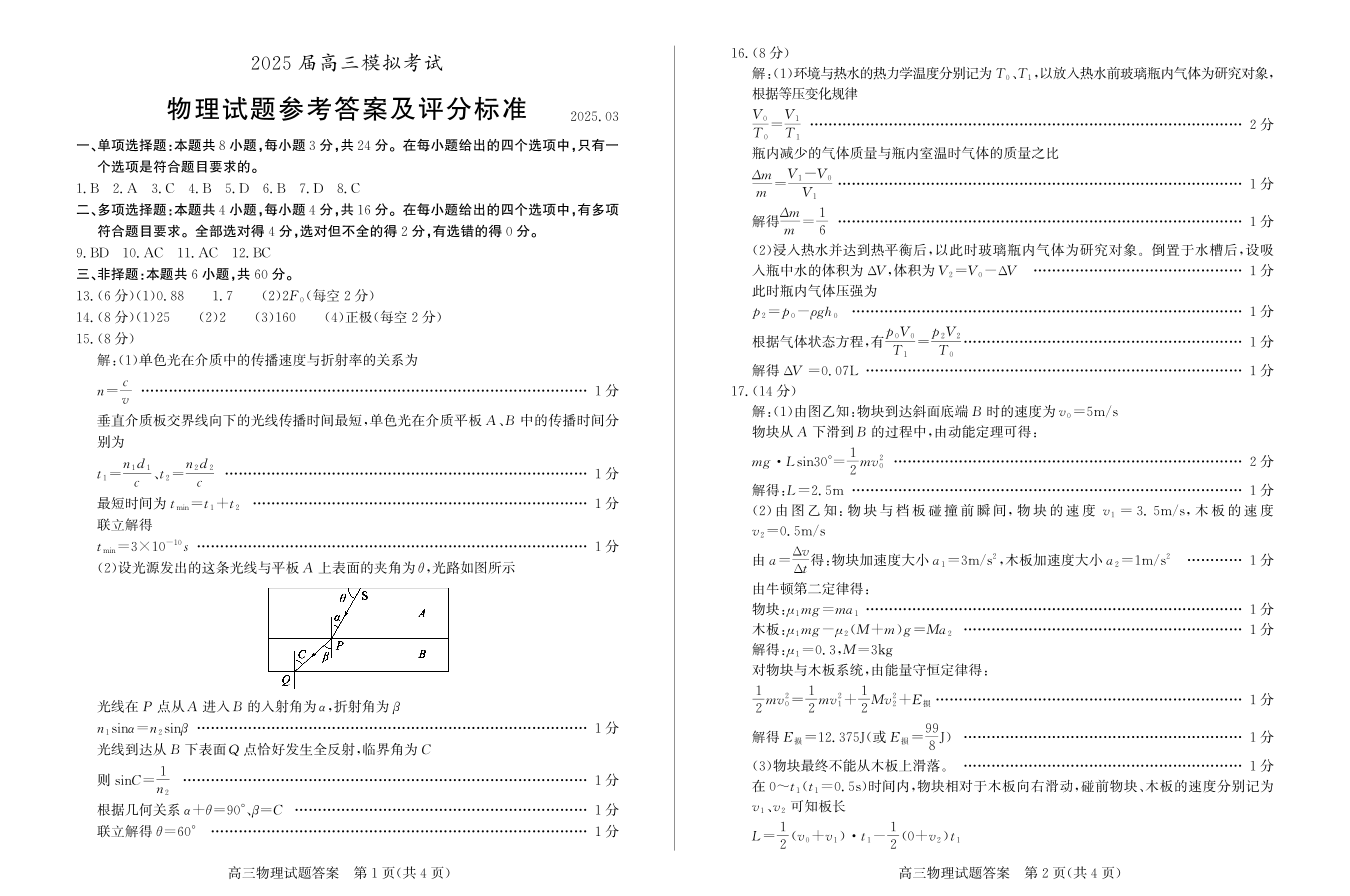 2025 届高三模拟考试
物理试题参考答案及评分标准 2025.03
一、单项选择题:本题共 8 小题,每小题 3 分,共 24 分。在每小题给出的四个选项中,只有一
个选项是符合题目要求的。
1.B 2.A 3.C 4.B 5.D 6.B 7.D 8.C
二、多项选择题:本题共 4 小题,每小题 4 分,共 16 分。在每小题给出的四个选项中,有多项
符合题目要求。全部选对得 4 分,选对但不全的得 2 分,有选错的得 0 分。
9.BD 10.AC 11.AC 12.BC
三、非择题:本题共 6 小题,共 60 分。
13.(6 分)(1)0.88 1.7 (2)2F₀(每空 2 分)
14.(8 分)(1)25 (2)2 (3)160 (4)正极(每空 2 分)
15.(8 分)
解:(1)单色光在介质中的传播速度与折射率的关系为
n=c/v ………… 1 分
垂直介质板交界线向下的光线传播时间最短,单色光在介质平板 A、B 中的传播时间分
别为
t₁=n₁d₁/c、t₂=n₂d₂/c ………… 1 分
最短时间为 tmin=t₁+t₂ ………… 1 分
联立解得
tmin=3×10⁻¹⁰s ………… 1 分
(2)设光源发出的这条光线与平板 A 上表面的夹角为θ,光路如图所示
θ S
α A
P
C β B
Q
光线在 P 点从A 进入B 的入射角为α,折射角为β
n₁sinα=n₂sinβ ………… 1 分
光线到达从 B 下表面Q 点恰好发生全反射,临界角为 C
则 sinC=1/n₂ ………… 1 分
根据几何关系 α+θ=90°、β=C ………… 1 分
联立解得 θ=60° ………… 1 分
高三物理试题答案 第 1 页(共 4 页)
16.(8 分)
解:(1)环境与热水的热力学温度分别记为 T₀、T₁,以放入热水前玻璃瓶内气体为研究对象,
根据等压变化规律
V₀/T₀=V₁/T₁ ………… 2 分
瓶内减少的气体质量与瓶内室温时气体的质量之比
Δm/m=(V₁-V₀)/V₁ ………… 1 分
解得Δm/m=1/6 ………… 1 分
(2)浸入热水并达到热平衡后,以此时玻璃瓶内气体为研究对象。倒置于水槽后,设吸
入瓶中水的体积为 ΔV,体积为 V₂=V₀-ΔV ………… 1 分
此时瓶内气体压强为
p₂=p₀-ρgh₀ ………… 1 分
根据气体状态方程,有p₀V₀/T₁=p₂V₂/T₀ ………… 1 分
解得 ΔV =0.07L ………… 1 分
17.(14 分)
解:(1)由图乙知:物块到达斜面底端 B 时的速度为 v₀=5m/s
物块从 A 下滑到B 的过程中,由动能定理可得:
mg·Lsin30°=1/2mv₀² ………… 2 分
解得:L=2.5m ………… 1 分
(2)由图乙知:物块与档板碰撞前瞬间,物块的速度 v₁=3.5m/s,木板的速度
v₂=0.5m/s
由 a=Δv/Δt得:物块加速度大小 a₁=3m/s²,木板加速度大小 a₂=1m/s² ………… 1 分
由牛顿第二定律得:
物块:μ₁mg=ma₁ ………… 1 分
木板:μ₁mg-μ₂(M+m)g=Ma₂ ………… 1 分
解得:μ₁=0.3,M=3kg
对物块与木板系统,由能量守恒定律得:
1/2mv₀²=1/2mv₁²+1/2Mv₂²+E损 ………… 1 分
解得 E损=12.375J(或 E损=99/8J) ………… 1 分
(3)物块最终不能从木板上滑落。 ………… 1 分
在 0~t₁(t₁=0.5s)时间内,物块相对于木板向右滑动,碰前物块、木板的速度分别记为
v₁、v₂ 可知板长
L=1/2(v₀+v₁)·t₁-1/2(0+v₂)t₁
高三物理试题答案 第 2 页(共 4 页)